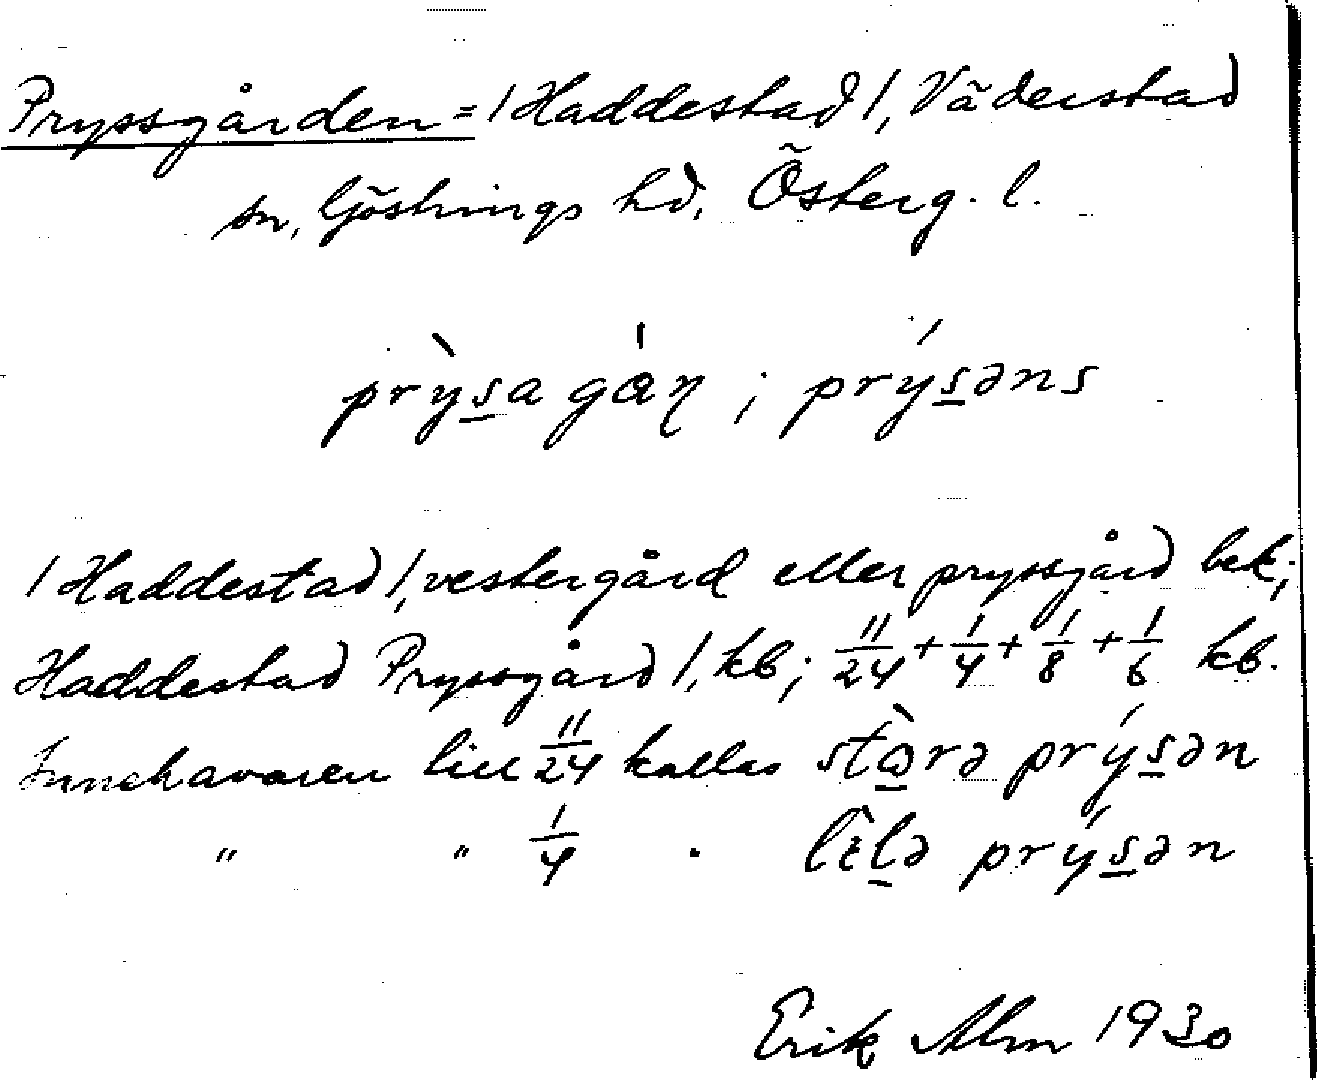 Pryssgården = 1 Haddestad 1, Väderstad
sn, Göstrings hd, Österg. l.
prỳsagáɳ ; prýsəns
1 Haddestad 1, vestergård eller pryssgård bek;
Haddestad Pryssgård 1, kb; 11/24 + 1/4 + 1/8 + 1/6 kb.
Innehavaren till 11/24 kallas stòrə prýsən
" " 1/4 " lìlə prýsən
Erik Alm 1930